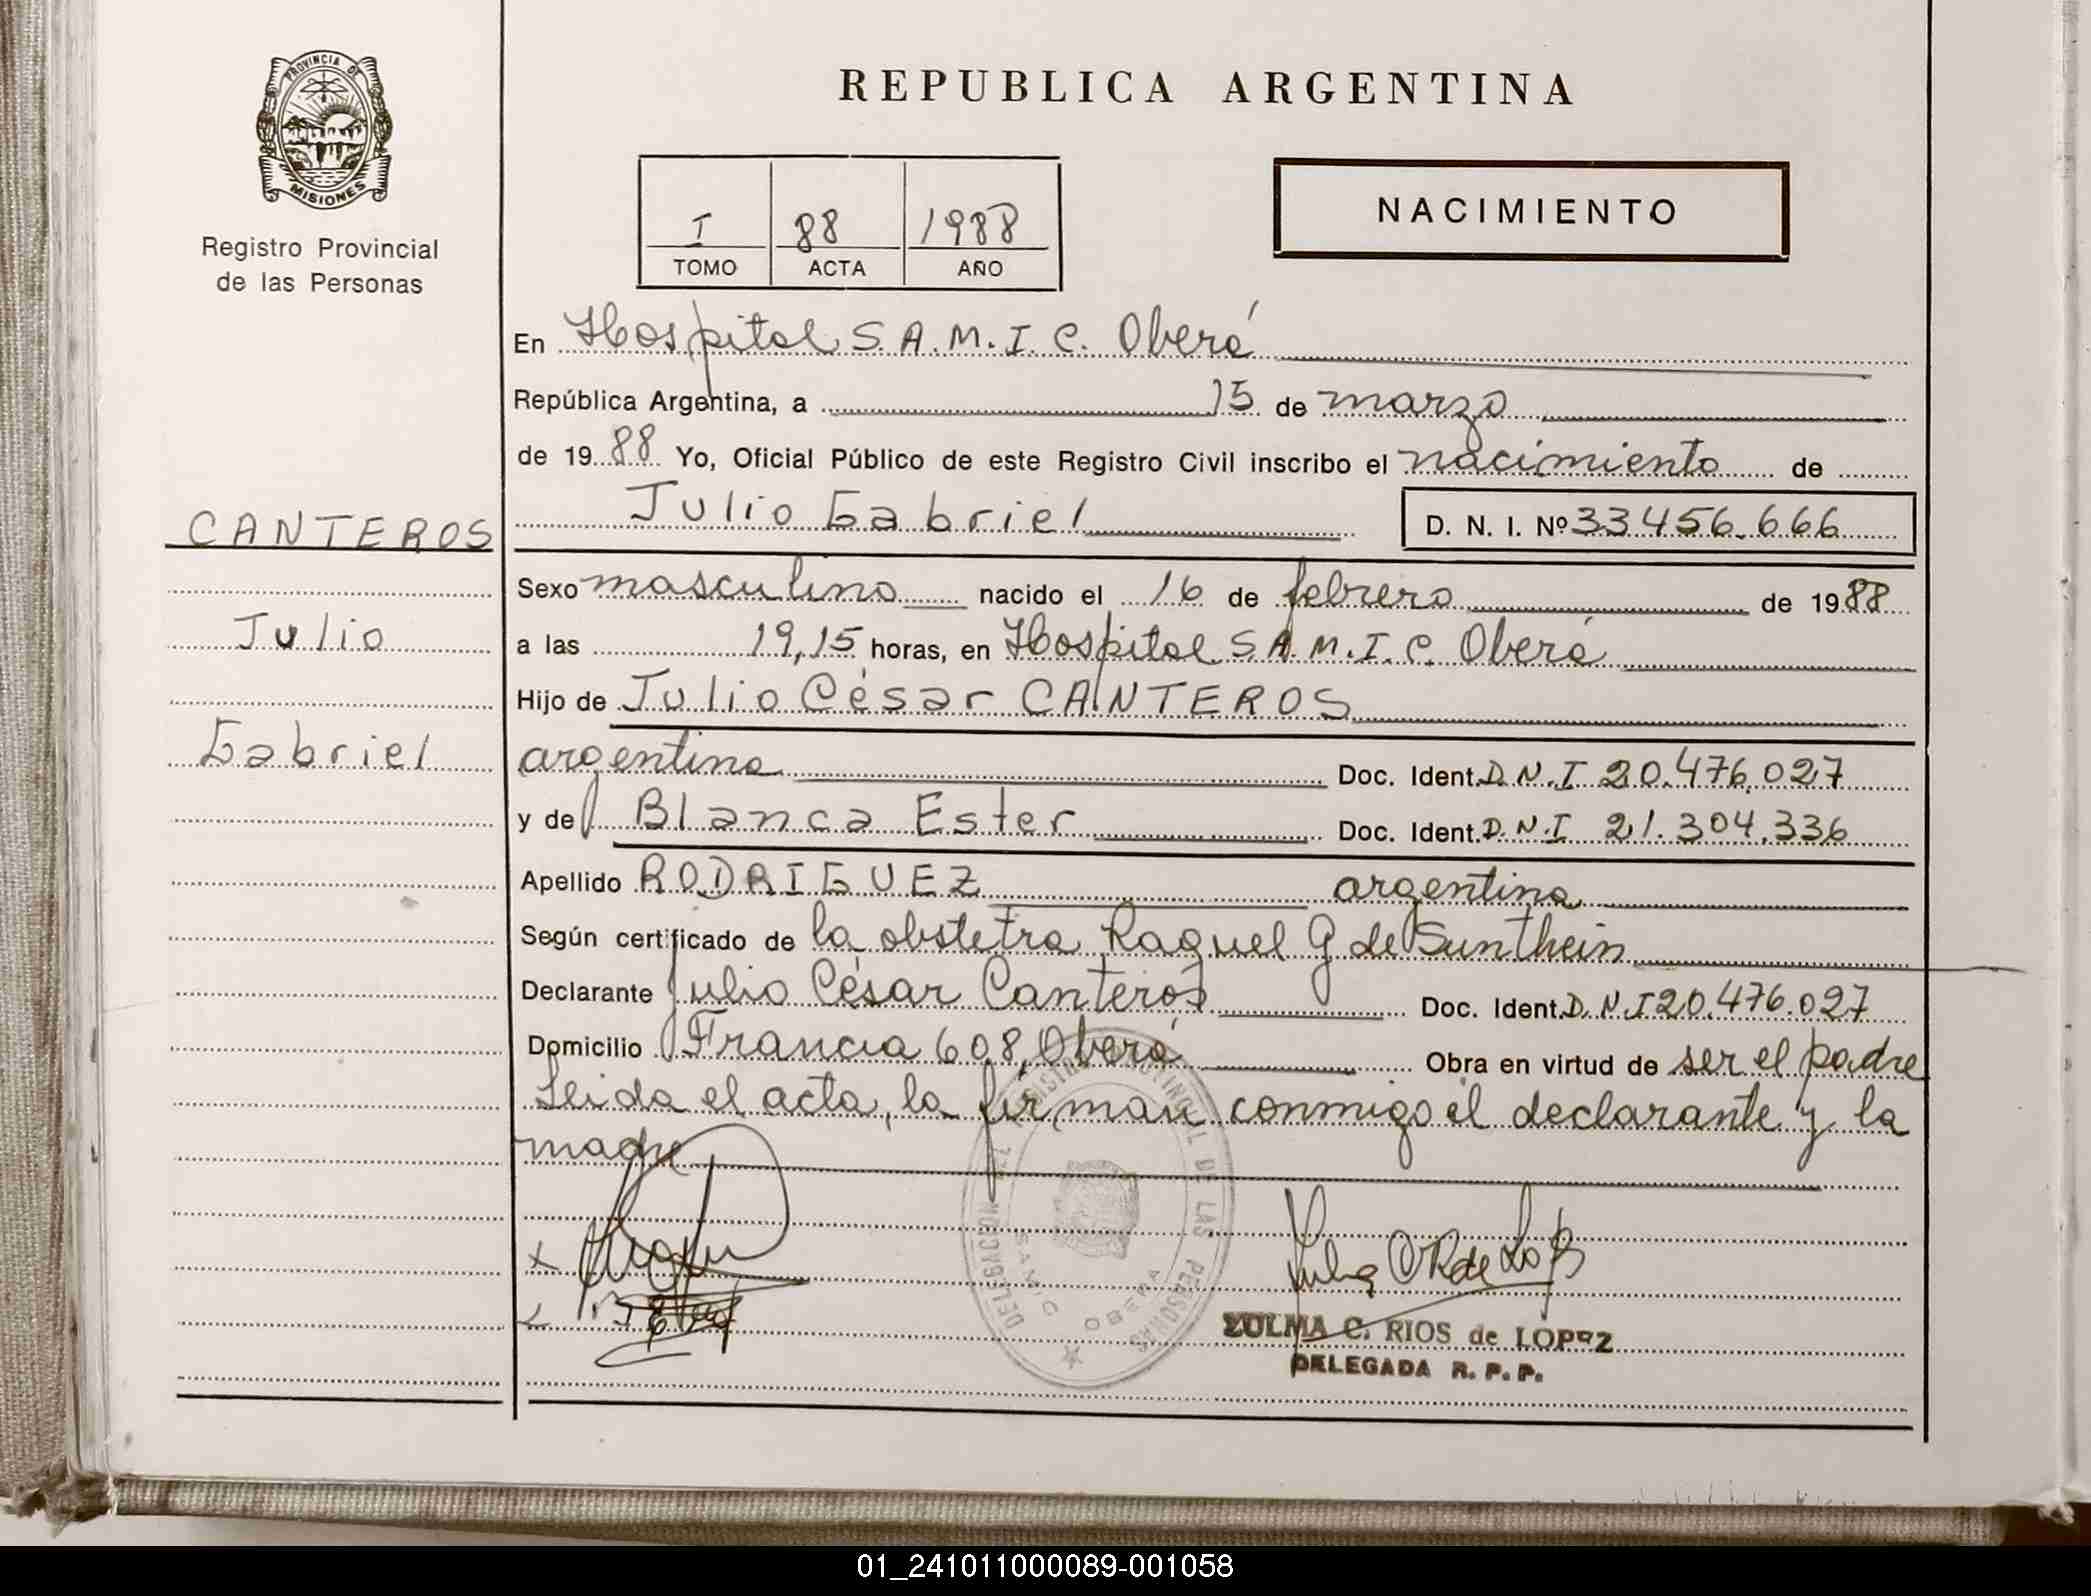 PROVINCIA DE
MISIONES
Registro Provincial
de las Personas
REPUBLICA ARGENTINA
I 88 1988
TOMO ACTA AÑO
NACIMIENTO
En Hospital S.A.M.I.C. Oberá
República Argentina, a 15 de marzo
de 1988 Yo, Oficial Público de este Registro Civil inscribo el nacimiento de
Julio Gabriel D. N. I. Nº 33.456.666
CANTEROS
Julio
Gabriel
Sexo masculino nacido el 16 de febrero de 1988
a las 19,15 horas, en Hospital S.A.M.I.C. Oberá
Hijo de Julio César CANTEROS
argentino Doc. Ident. D.N.I 20.476.027
y de Blanca Ester Doc. Ident. D.N.I 21.304.336
Apellido RODRIGUEZ argentina
Según certificado de la obstetra Raquel G de Sunthein
Declarante Julio César Canteros Doc. Ident. D.N.I 20.476.027
Domicilio Francia 608, Oberá Obra en virtud de ser el padre
Leida el acta, la firman conmigo el declarante y la
madre
DELEGACION DEL REGISTRO PROVINCIAL DE LAS PERSONAS
SAMIC OBERA
ZULMA C. RIOS de LOPEZ
DELEGADA R. P. P.
01_241011000089-001058